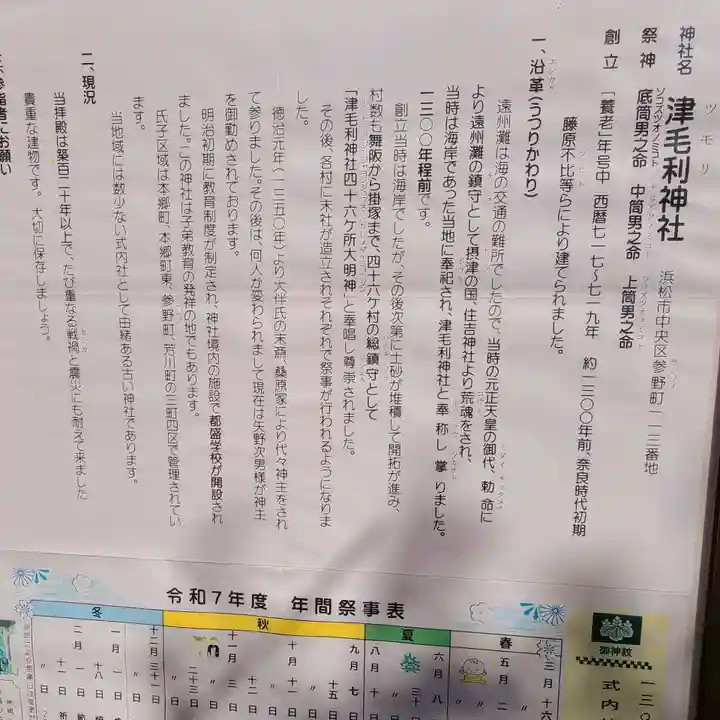 神社名 津毛利神社 浜松市中央区参野町一一三番地
ツモリ
祭神 底筒男之命 中筒男之命 上筒男之命
創立 「養老」年号中 西暦七一七〜七一九年 約一三〇〇年前、奈良時代初期
藤原不比等らにより建てられました。
一、沿革(うつりかわり)
遠州灘は海の交通の難所でしたので、当時の元正天皇の御代、勅命に
より遠州灘の鎮守として摂津の国、住吉神社より荒魂をされ、
当時は海岸であった当地に奉祀され、津毛利神社と奉称し掌りました。
一三〇〇年程前です。
創立当時は海岸でしたが、その後次第に土砂が堆積して開拓が進み、
村数も舞阪から掛塚まで、四十六ケ村の総鎮守として
「津毛利神社四十六ケ所大明神」と奉唱し尊崇されました。
その後、各村に末社が造立されそれぞれで祭事が行われるようになりま
した。
徳治元年(一三五〇年)より大伴氏の末裔、桑原家により代々神主をされ
て参りました。その後は、何人か変わられまして現在は矢野次男様が神主
を御勤めされております。
明治初期に教育制度が制定され、神社境内の施設で都盛学校が開設され
ました。この神社は子弟教育の発祥の地でもあります。
氏子区域は本郷町、本郷町東、参野町、芳川町の三町四区で管理されてい
ます。
当地域には数少ない式内社として由緒ある古い神社であります。
二、現況
当拝殿は築百二十年以上で、たび重なる戦禍と震災にも耐えて来ました
貴重な建物です。大切に保存しましょう。
三、参詣者にお願い
令和7年度 年間祭事表
春
夏
秋
冬
御神紋
式内
三月
十六
五月
〃
二
六月
八
〃
三十
八月
十
九月 七日
〃 十五日
十月 十一日
〃 十二日
十一月 三日
〃 二十三日
十二月三十一日
一月 一日
〃 十八日
二月 一日 節
〃 十一日 祈